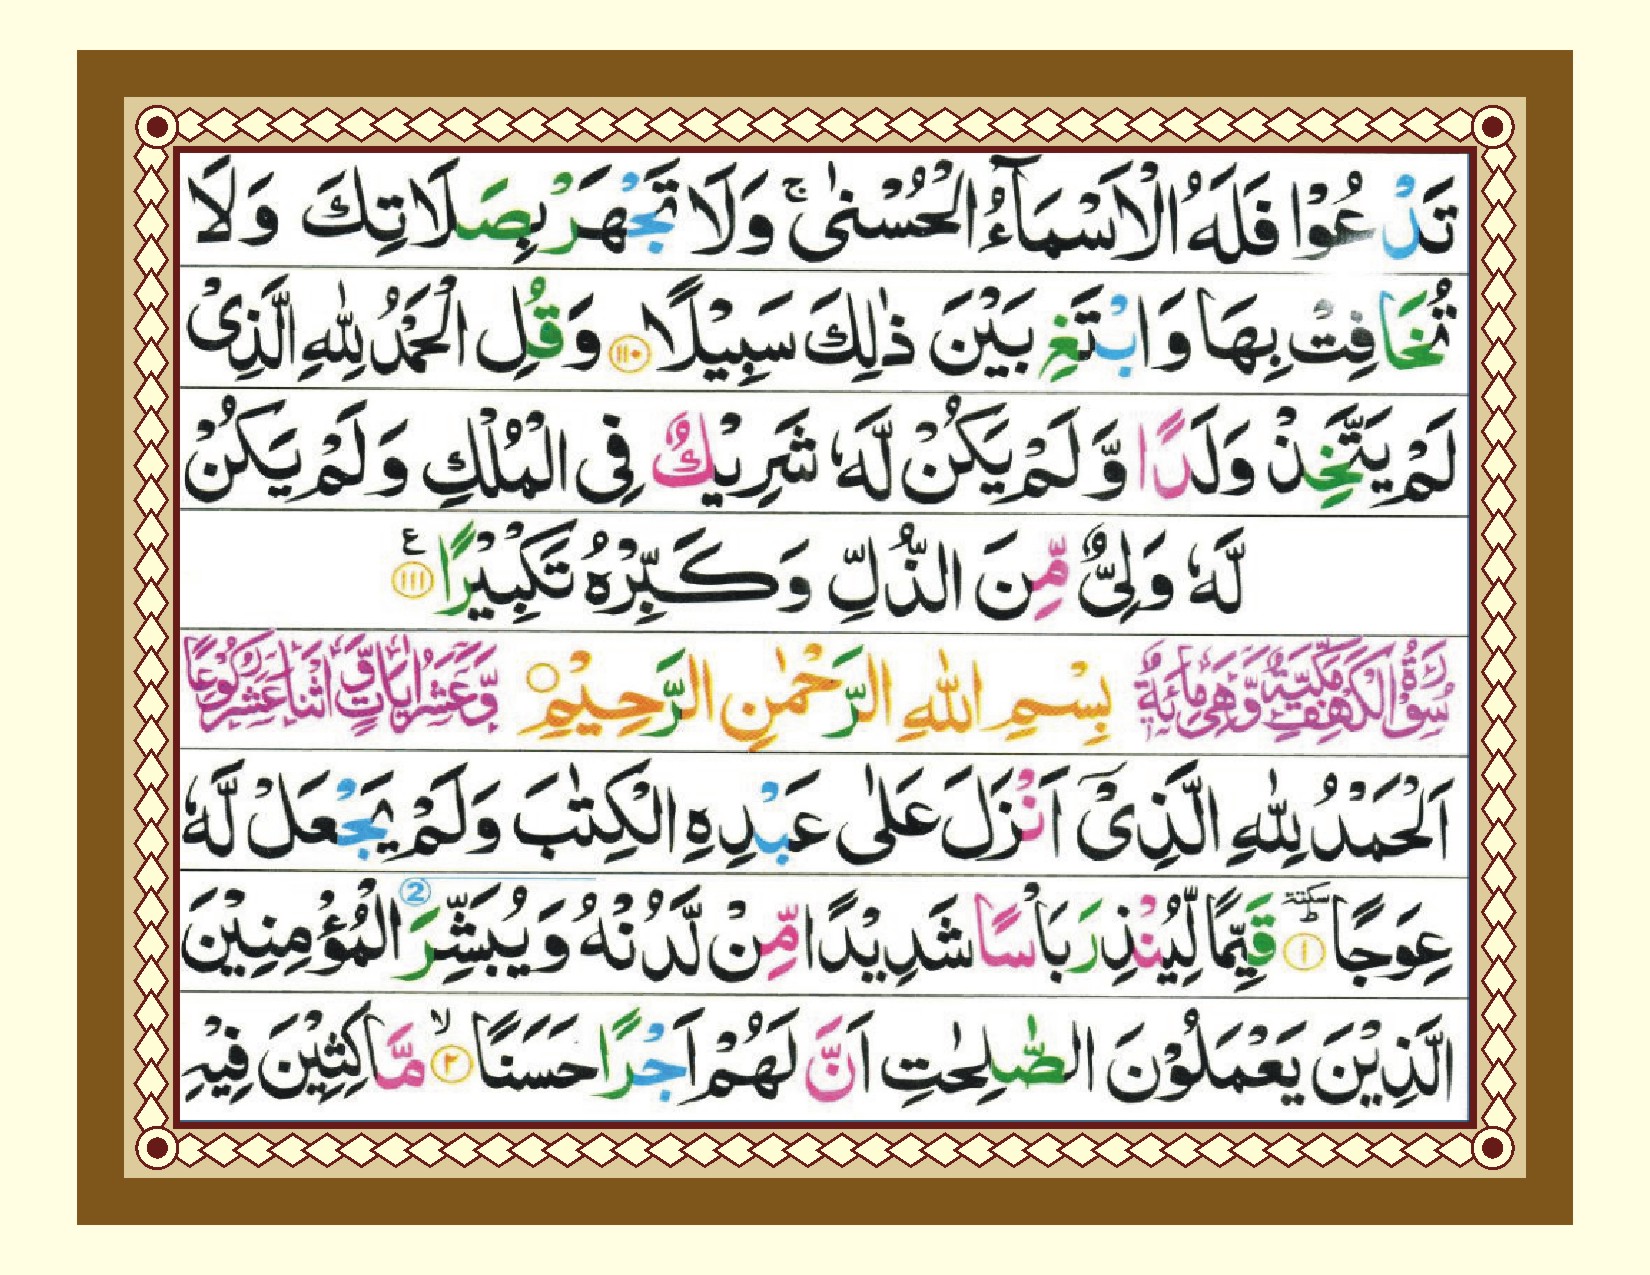 تَدْعُوْا فَلَهُ الْاَسْمَآءُ الْحُسْنٰى ۚ وَلَا تَجْهَرْ بِصَلَاتِكَ وَلَا
تُخَافِتْ بِهَا وَابْتَغِ بَيْنَ ذٰلِكَ سَبِيْلًا ۝۱۱۰ وَقُلِ الْحَمْدُ لِلّٰهِ الَّذِىْ
لَمْ يَتَّخِذْ وَلَدًا وَّلَمْ يَكُنْ لَّهٗ شَرِيْكٌ فِى الْمُلْكِ وَلَمْ يَكُنْ
لَّهٗ وَلِىٌّ مِّنَ الذُّلِّ وَكَبِّرْهُ تَكْبِيْرًا ۝۱۱۱ ع
سُوْرَةُ الْكَهْفِ مَكِّيَّةٌ وَّهِىَ مِائَةٌ بِسْمِ اللّٰهِ الرَّحْمٰنِ الرَّحِيْمِ ۝ وَّعَشْرُ اٰيَاتٍ وَّاثْنَا عَشَرَ رُكُوْعًا
اَلْحَمْدُ لِلّٰهِ الَّذِىْٓ اَنْزَلَ عَلٰى عَبْدِهِ الْكِتٰبَ وَلَمْ يَجْعَلْ لَّهٗ
عِوَجًا ۝۱ سكتة ط قَيِّمًا لِّيُنْذِرَ بَاْسًا شَدِيْدًا مِّنْ لَّدُنْهُ وَيُبَشِّرَ 2 الْمُؤْمِنِيْنَ
الَّذِيْنَ يَعْمَلُوْنَ الصّٰلِحٰتِ اَنَّ لَهُمْ اَجْرًا حَسَنًا ۙ ۝۲ مَّاكِثِيْنَ فِيْهِ